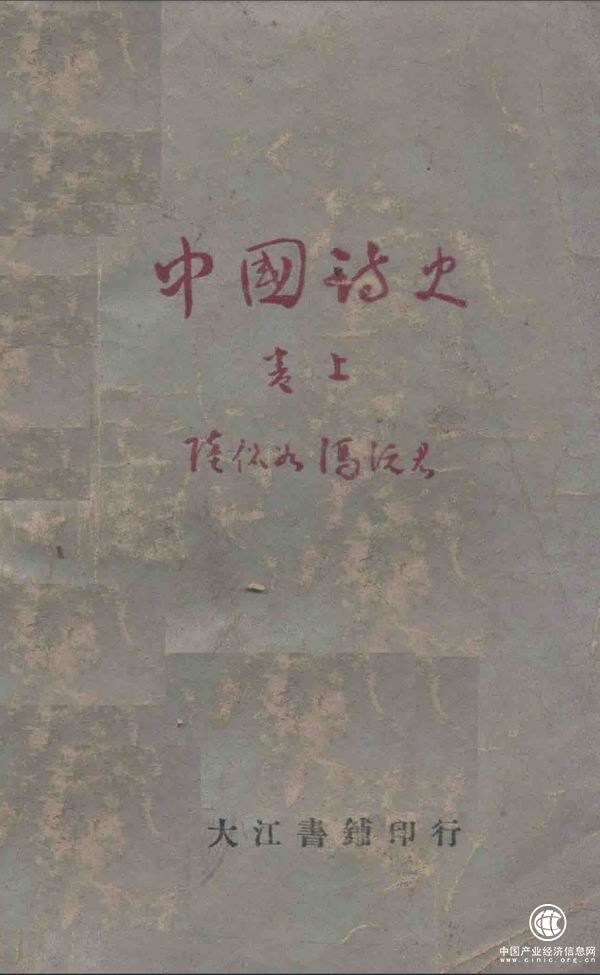 中國詩史
卷上
陸侃如 馮沅君
大江書鋪印行
中国产业经济信息网
www.cinic.org.cn